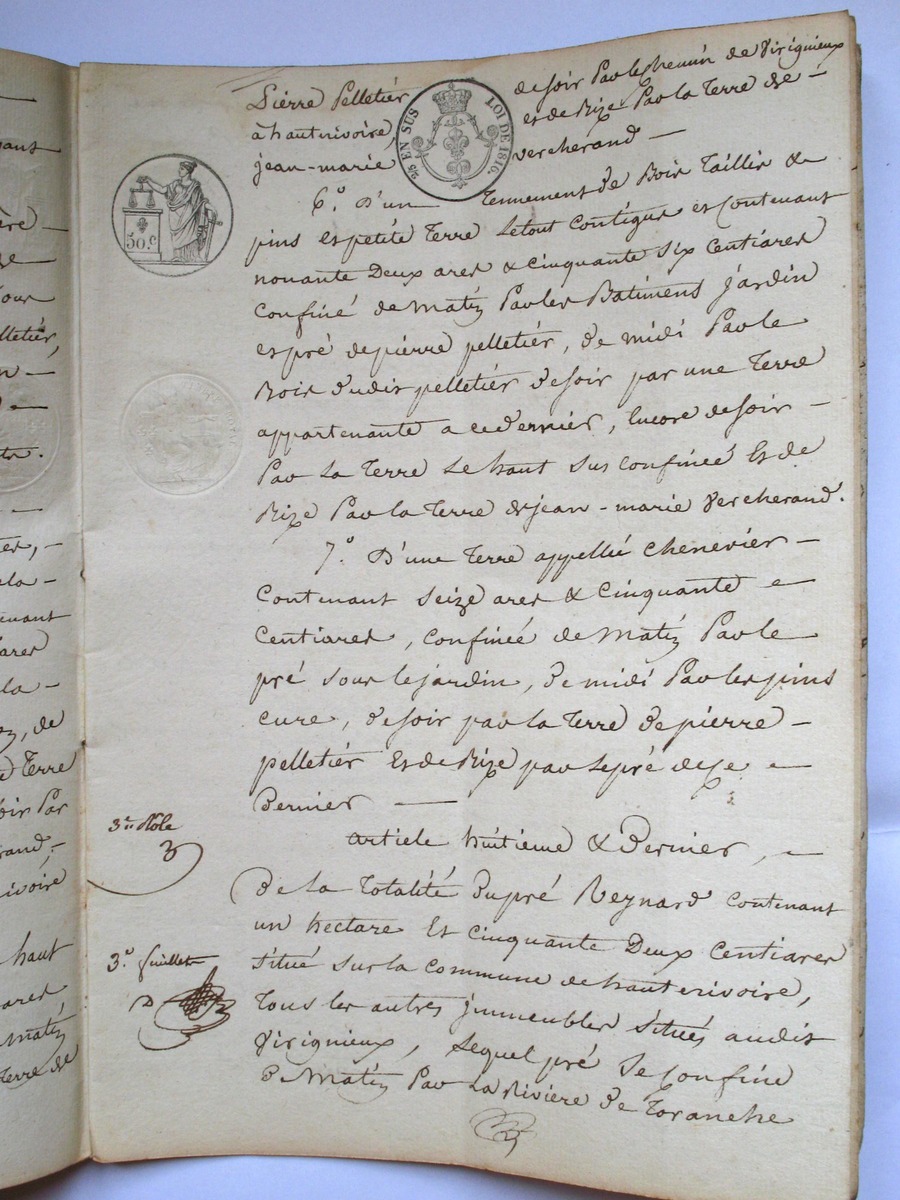 Pierre Pelletier
à hauterivoire,
jean-marie
2/5 EN SUS
LOI DE 1816.
de soir Par le chemin de Virignieux
et de Bize Par la Terre de –
Vercherand —
50.c
6.º D'un — Tennement de Bois Taillis &
pins et petite Terre le tout Contigus et Contenant
nonante Deux ares & cinquante six Centiares
Confiné de Matin Par les Batiments jardin
et pré de pierre pelletier, de midi Par le
Bois dudit pelletier de soir par une Terre
appartenante a ce dernier, Encore de soir –
Par La Terre Le haut sus confineé Et de
Bize Par la Terre de jean-marie Vercherand.
7.º D'une Terre appellée Chenevier –
Contenant seize ares & Cinquante –
Centiares, Confineé de Matin Par le
pré sous le jardin, de midi Par les pins
cure, de soir par la Terre de pierre –
pelletier Et de Bize par le pré de ce –
Dernier —
article huitieme & Dernier, –
De la Totalité du pré Reynard Contenant
un hectare Et Cinquante Deux Centiares
situé sur la commune de hauterivoire,
Tous les autres immeubles situés audit
Virignieux, lequel pré se confine
de Matin Par La Rivière de Toranche
3.me Rôle
3
3.e feuillet
pant
–
ère –
Pour
lletier,
n –
–
–
uant
ares
la –
, de
Terre
oir Par
rand,
ivoire
haut
ares
Matin
Terre de